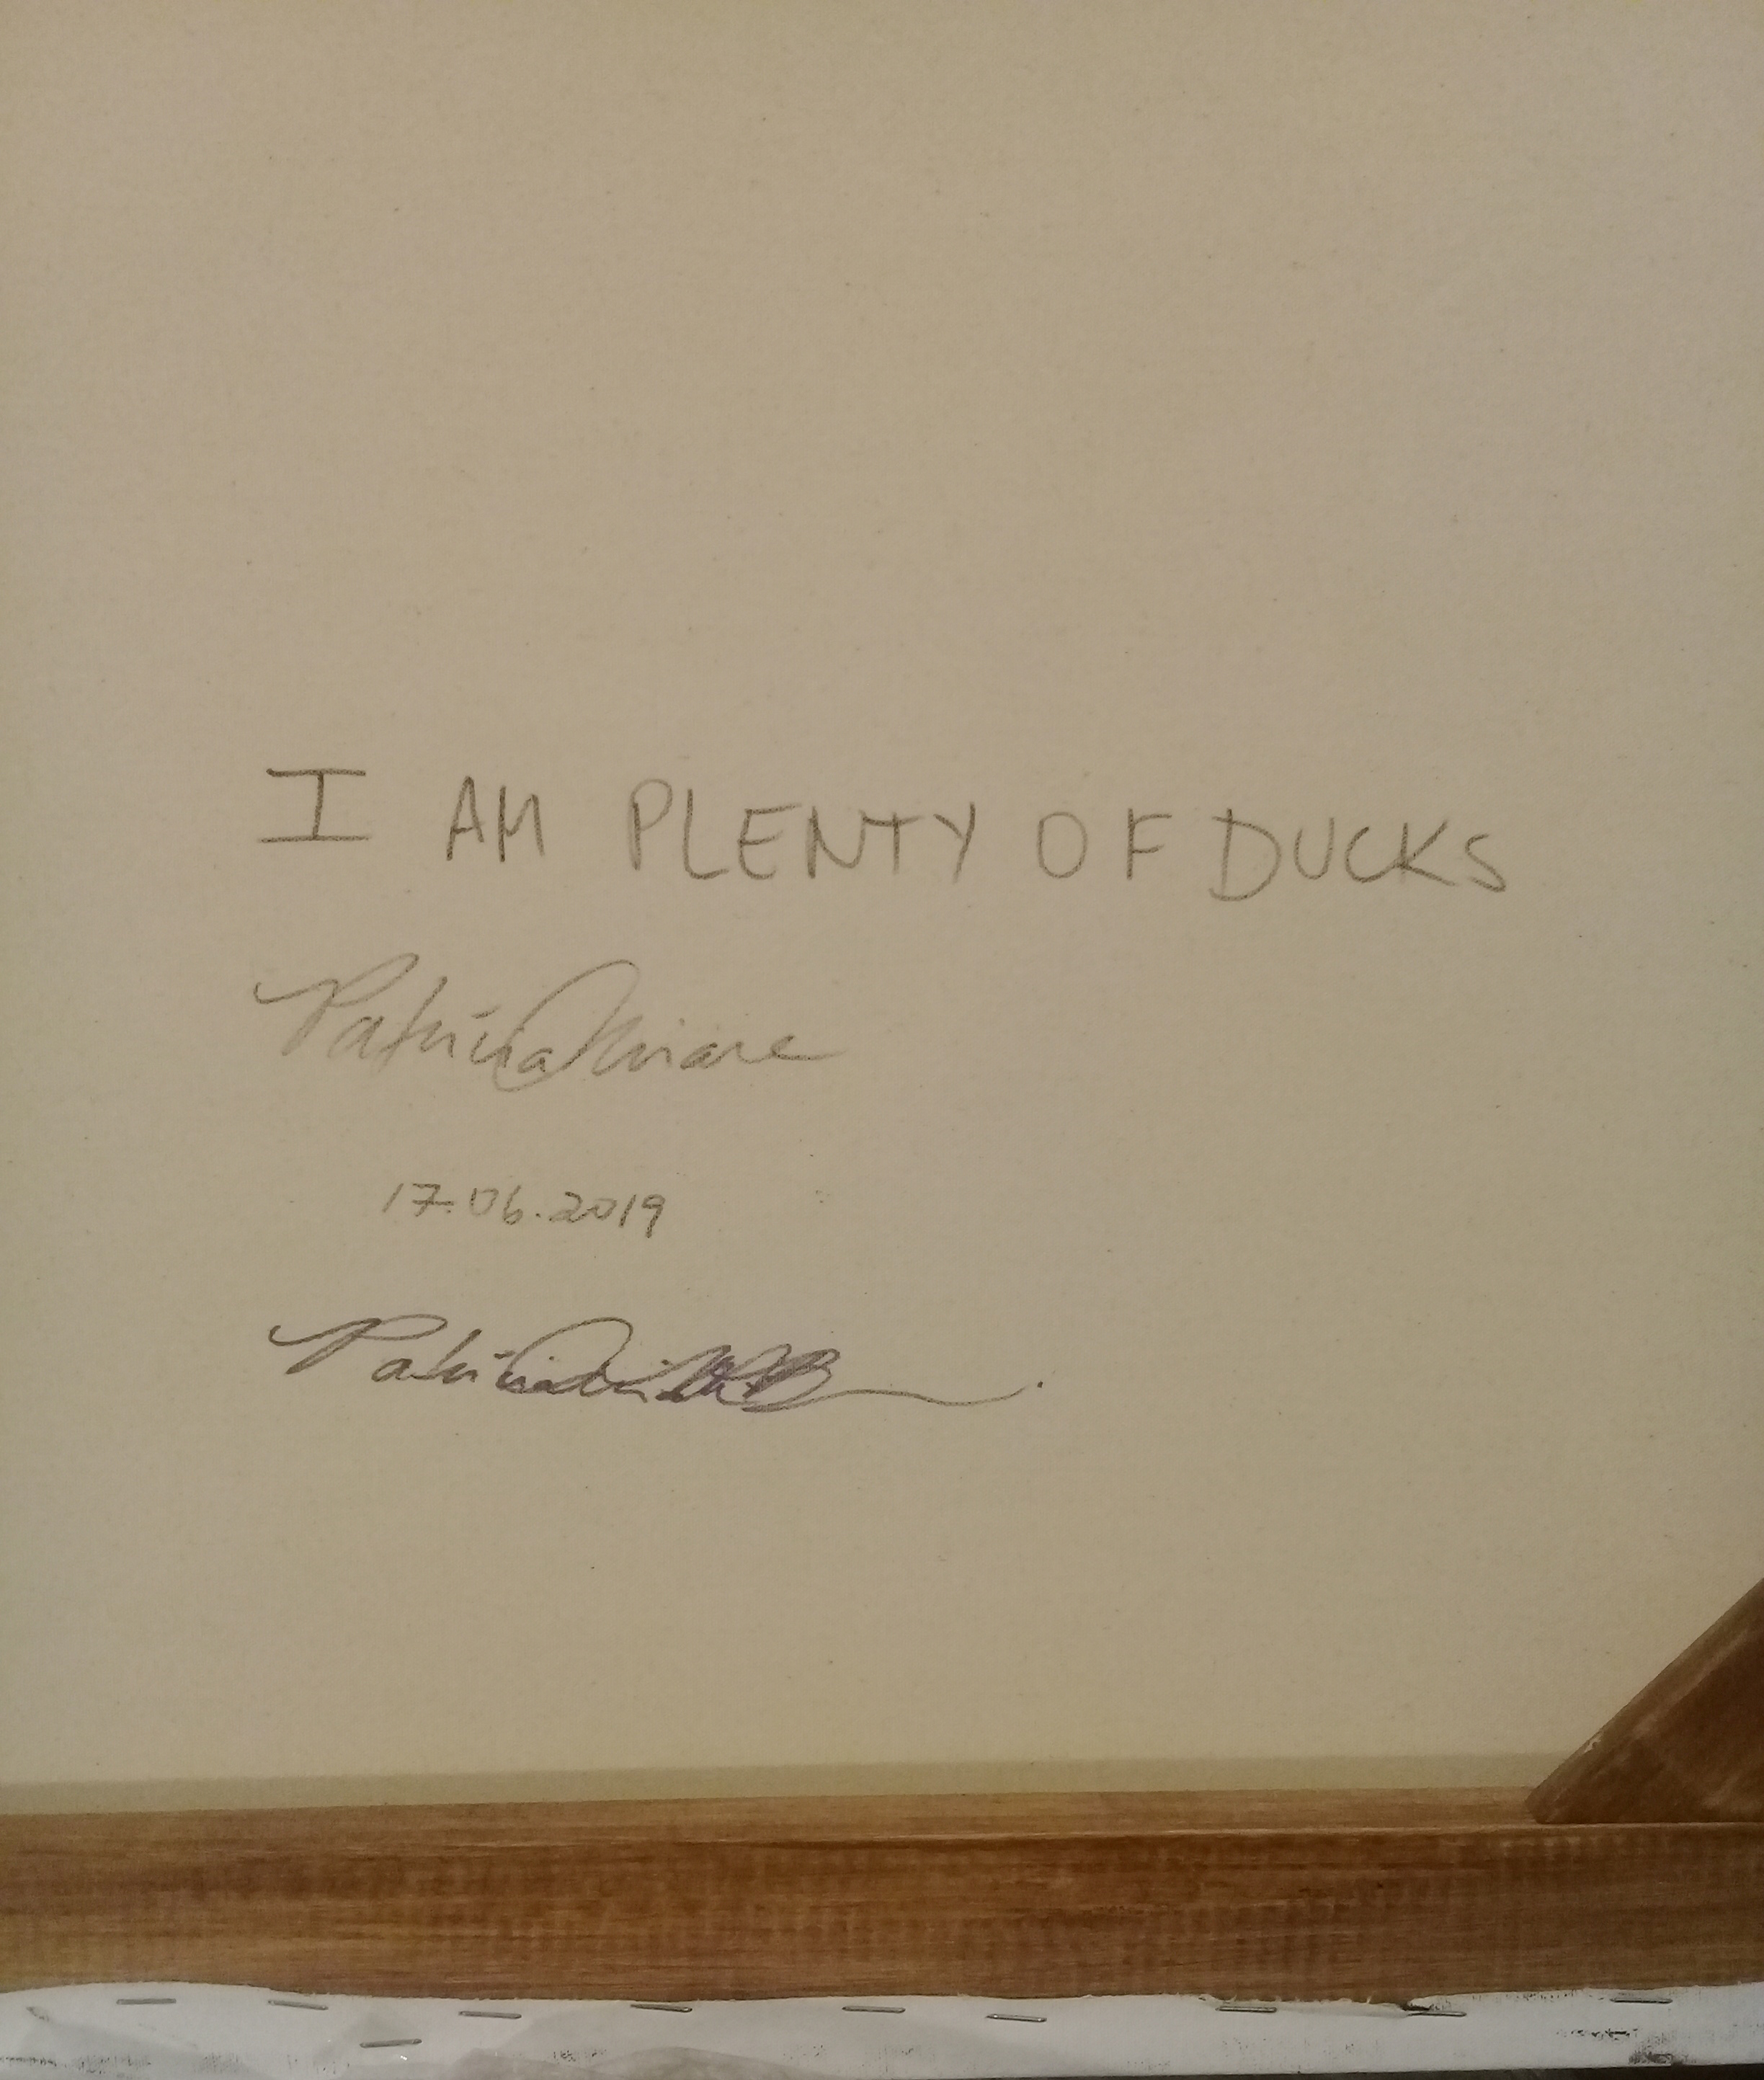 I AM PLENTY OF DUCKS
Patricia
17.06.2019
Patricia